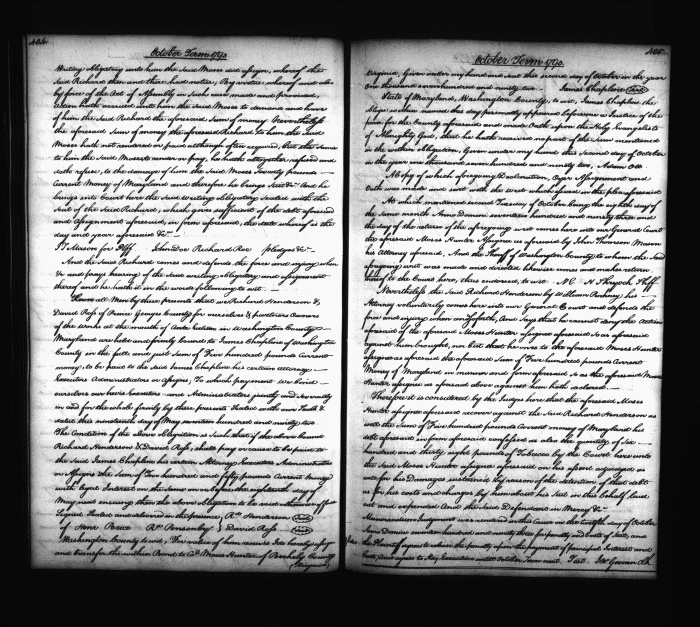 404
October Term 1793
Writing Obligatory unto him the said Moses did assign, whereof the
said Richard then and there had notice, By virtue whereof and also
by force of the Act of Assembly in such case made and provided,
Action hath accrued unto him the said Moses to demand and have
of him the said Richard the aforesaid Sum of money Nevertheless
the aforesaid Sum of money the aforesaid Richard to him the said
Moses hath not rendered or paid although often required, But the same
to him the said Moses to render or pay, he hath altogether refused and
doth refuse, to the damage of him the said Moses Seventy pounds
Current Money of Maryland and therefore he brings Suit &c. And he
brings into Court here the said Writing obligatory Sealed with the
Seal of the said Richard, which gives sufficient of the debt aforesaid
and Assignment aforesaid, in form aforesaid, the date whereof is the
day and year aforesaid &c.
J. T. Mason for Plff. John Doe Richard Roe pledges &c.
And the said Richard comes and defends the force and injury when
&c and prays hearing of the said writing obligatory and assignment
thereof and he hath it in the words following to wit
Know all Men by these presents that we Richard Henderson &
David Ross of Prince Georges County for ourselves & partners owners
of the Works at the mouth of Antietam in Washington County
Maryland are held and firmly bound to James Chapline of Washington
County in the full and just Sum of Five hundred pounds Current
money, to be paid to the said James Chapline his certain attorney
Executors Administrators or Assigns, To which payment we bind
ourselves our heirs Executors and Administrators jointly and severally
in and for the whole firmly by these presents Sealed with our Seals &
dated this nineteenth day of May seventeen hundred and ninety two
The Condition of the above Obligation is Such that if the above bound
Richard Henderson & David Ross, shall pay or cause to be paid to
the said James Chapline, his certain Attorney Executors Administrators
or Assigns the Sum of Two hundred and fifty pounds Current money
with legal Interest on the same on or before the eighteenth day of
May next ensuing then the above obligation to be void otherwise of force
Signed Sealed and delivered in the presence Rd. Henderson Seal
of Stone Bruce Rd. Ponsonby David Ross Seal
Washington County to wit, For value of him received I do hereby assign
and transfer the within Bond to Col. Moses Hunter of Berkely County
Virginia
405
October Term 1793.
Virginia, Given under my hand and Seal this second day of October in the year
One thousand seven hundred and ninety two James Chapline Seal
State of Maryland, Washington County, to wit, James Chapline the
Elder in his own hand this day personally appeared before me a Justice of the
peace for the County aforesaid and made Oath upon the Holy Evangelists
of Almighty God, that he hath received no part of the Sum mentioned
in the within Obligation, Given under my hand this second day of October
in the year one thousand seven hundred and ninety two, Adam Ott
A Copy of which aforegoing Declaration, Oyer Assignment and
Oath was made and sent with the writ which issued in the plea aforesaid
At which mentioned second Tuesday of October being the eighth day of
the same month Anno Domini seventeen hundred and ninety three and
the day of the return of the aforegoing writ comes here into our General Court
the aforesaid Moses Hunter Assignee as aforesaid by John Thomson Mason
his Attorney aforesaid, And the Sheriff of Washington County to whom the said
aforegoing writ was made and directed likewise comes and makes return
thereof to the Court here, thus endorsed, to wit. N. C. H Shryock Shff.
Nevertheless the said Richard Henderson by William Pinkney his
Attorney voluntarily comes here into our General Court and defends the
force and injury when and so forth, And says that he cannot deny the Action
aforesaid of the aforesaid Moses Hunter assignee aforesaid so as aforesaid
against him brought, nor But that he owes to the aforesaid Moses Hunter
assignee as aforesaid the aforesaid Sum of Five hundred pounds Current
Money of Maryland in manner and form aforesaid So as the aforesaid Moses
Hunter assignee as aforesaid above against him hath declared
Therefore it is considered by the Judges here that the aforesaid Moses
Hunter assignee aforesaid recover against the said Richard Henderson as
well the Sum of Five hundred pounds Current money of Maryland his
debt aforesaid in form aforesaid confessed as also the quantity of Six
hundred and thirty eight pounds of Tobacco by the Court here unto
the said Moses Hunter assignee aforesaid on his assent adjudged as
well for his Damages sustained by reason of the detention of that debt
as for his costs and charges by him about his Suit in this behalf laid
out and expended And the said Defendant in Mercy &c.
Memorandum Judgment was rendered in this Cause on the twelfth day of October
Anno Domini seventeen hundred and ninety three for penalty and Costs of suit, and
the Plaintiff agrees to release the penalty upon the payment of principal Interest and
Costs, And agrees to stay Execution until October Term next. Test. Jno Gwinn Clk